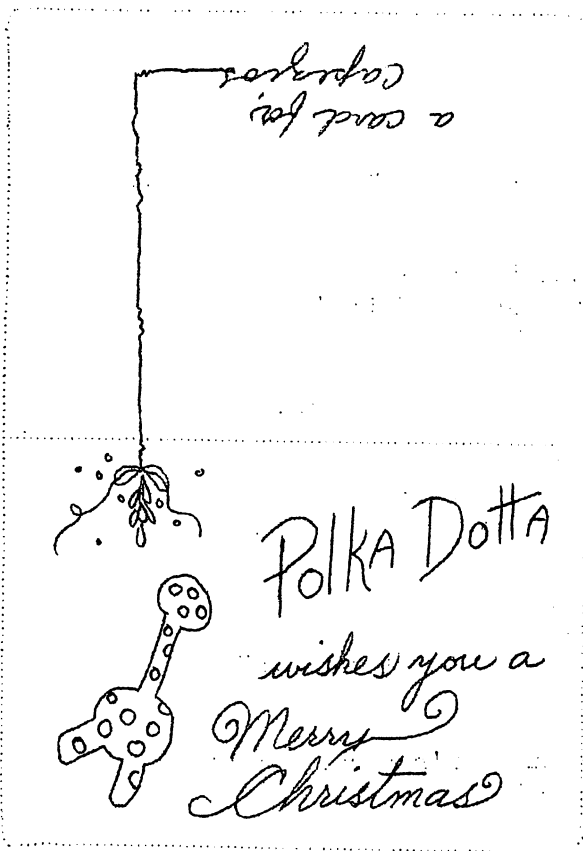 a card for
Capezios
Polka Dotta
wishes you a
Merry
Christmas